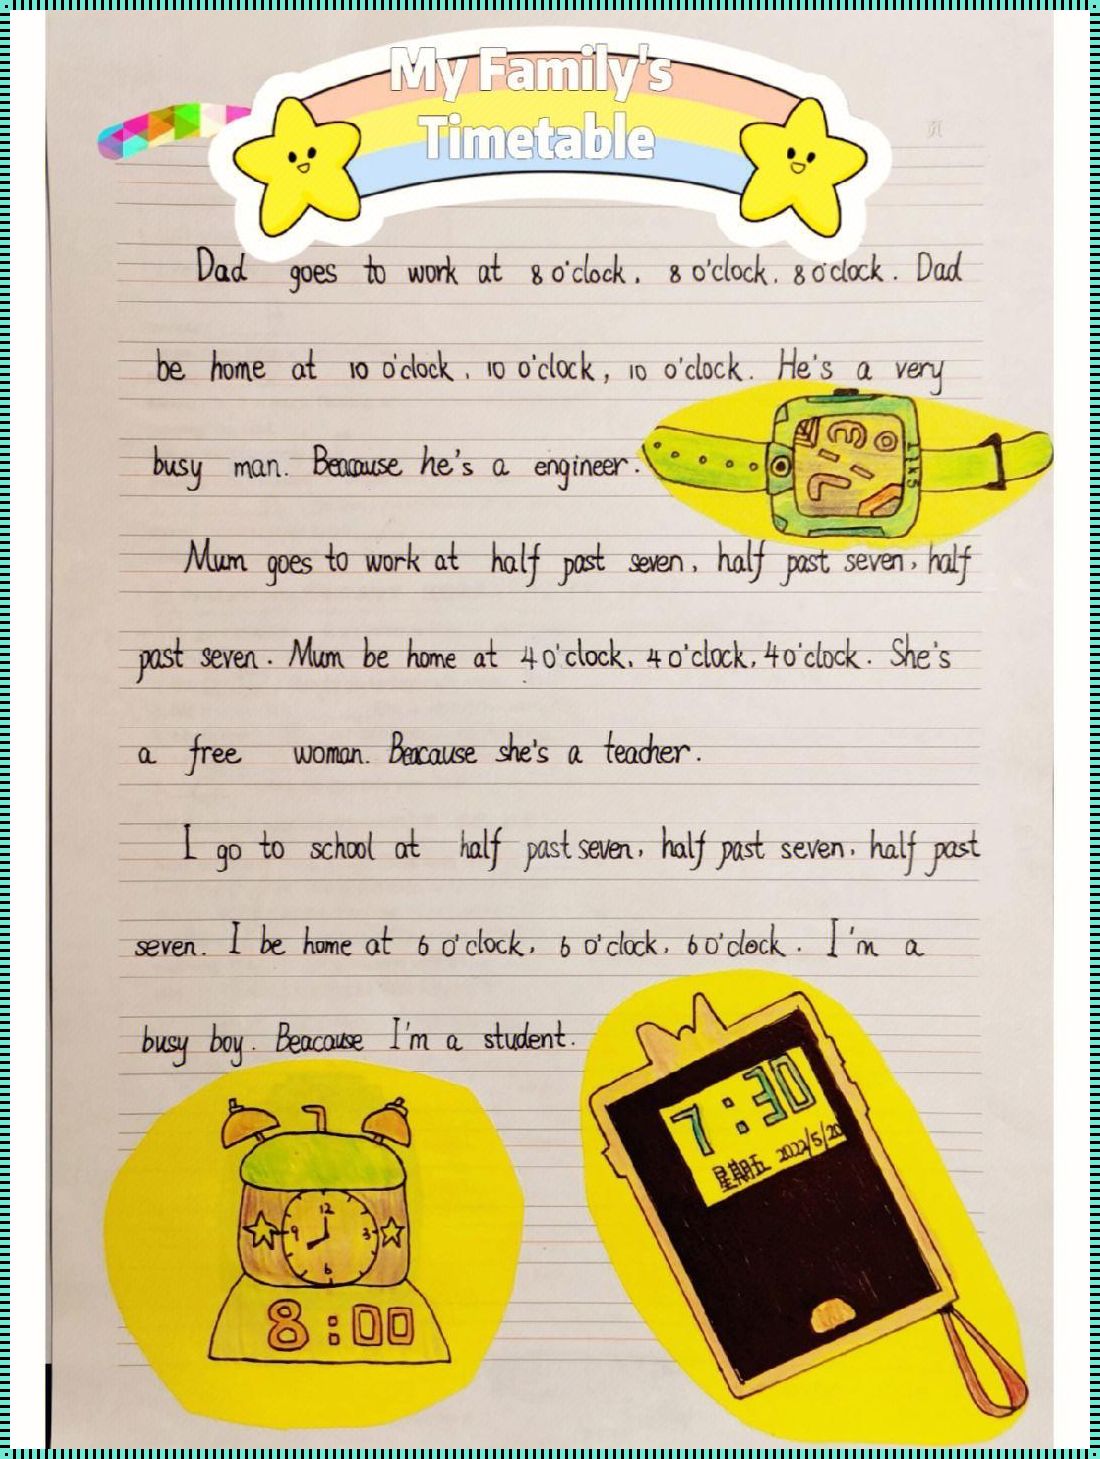 My Family's
Timetable
页
Dad goes to work at 8 o'clock, 8 o'clock, 8 o'clock. Dad
be home at 10 o'clock, 10 o'clock, 10 o'clock. He's a very
busy man. Beacause he's a engineer.
Mum goes to work at half past seven, half past seven, half
past seven. Mum be home at 4 o'clock, 4 o'clock, 4 o'clock. She's
a free woman. Beacause she's a teacher.
I go to school at half past seven, half past seven, half past
seven. I be home at 6 o'clock, 6 o'clock, 6 o'clock. I'm a
busy boy. Beacause I'm a student.
7:30
星期五 2022/5/20
12
9 3
6
8:00